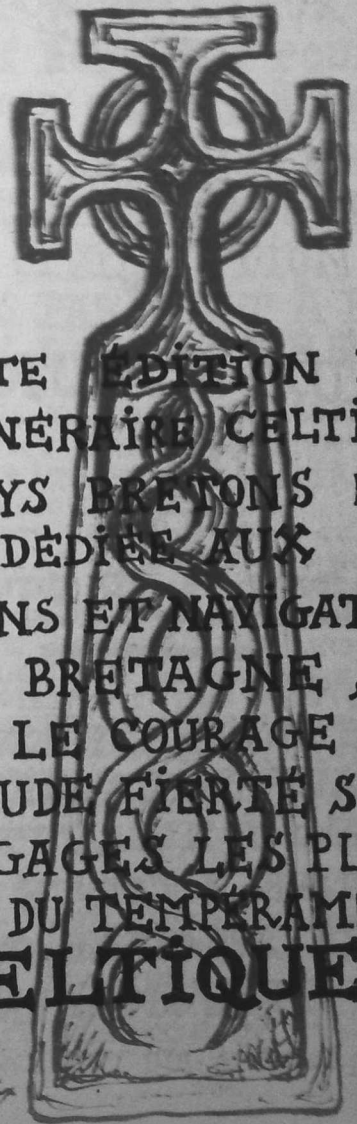 TE ÉDITION
NÉRAIRE CELTI
YS BRETONS
DÉDIÉE AUX
NS ET NAVIGAT
BRETAGNE,
LE COURAGE
UDE FIERTÉ S
GAGES LES PL
DU TEMPÉRAM
ELTIQUE